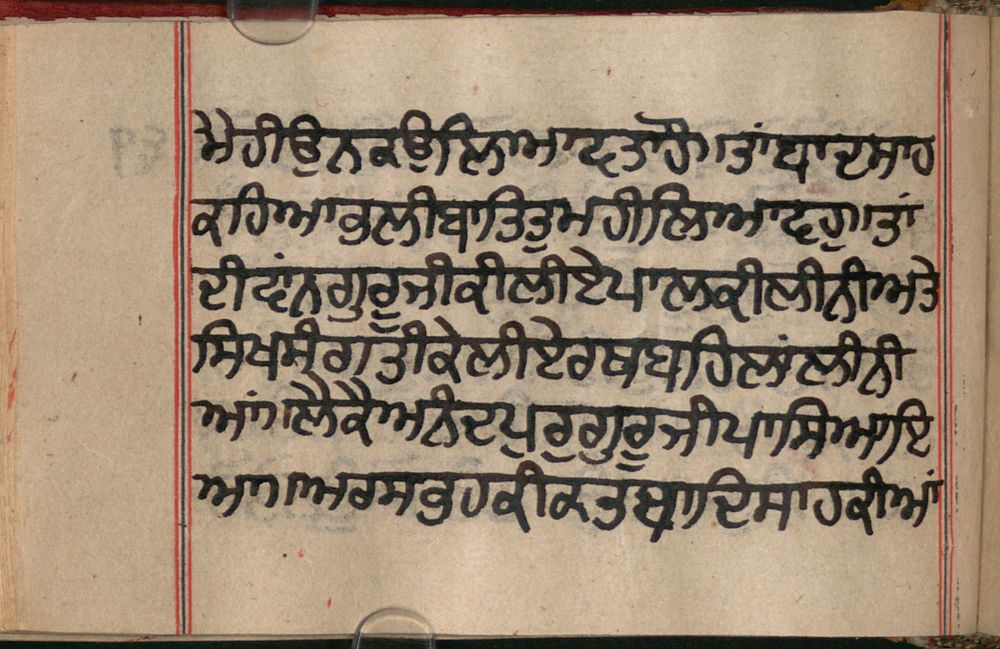 ਮੈਹੀਉਨਕਉਲਿਆਵਤਾਹੌ।ਤਾਂਬਾਦਸਾਹ
ਕਹਿਆਭਲੀਬਾਤਿਤੁਮਹੀਲਿਆਵਹੁ।ਤਾਂ
ਦੀਵਾਂਨਗੁਰੂਜੀਕੀਲੀਏਪਾਲਕੀਲੀਨੀਅਤੇ
ਸਿਖਸੰਗਤੀਕੇਲੀਏਰਥਬਹਿਲਾਂਲੀਨੀ
ਆਂ।ਲੈਕੈਅਨੰਦਪੁਰੁਗੁਰੂਜੀਪਾਸਿਆਇ
ਆ।ਅਰਸਭਹਕੀਕਤਬਾਦਿਸਾਹਕੀਆਂ